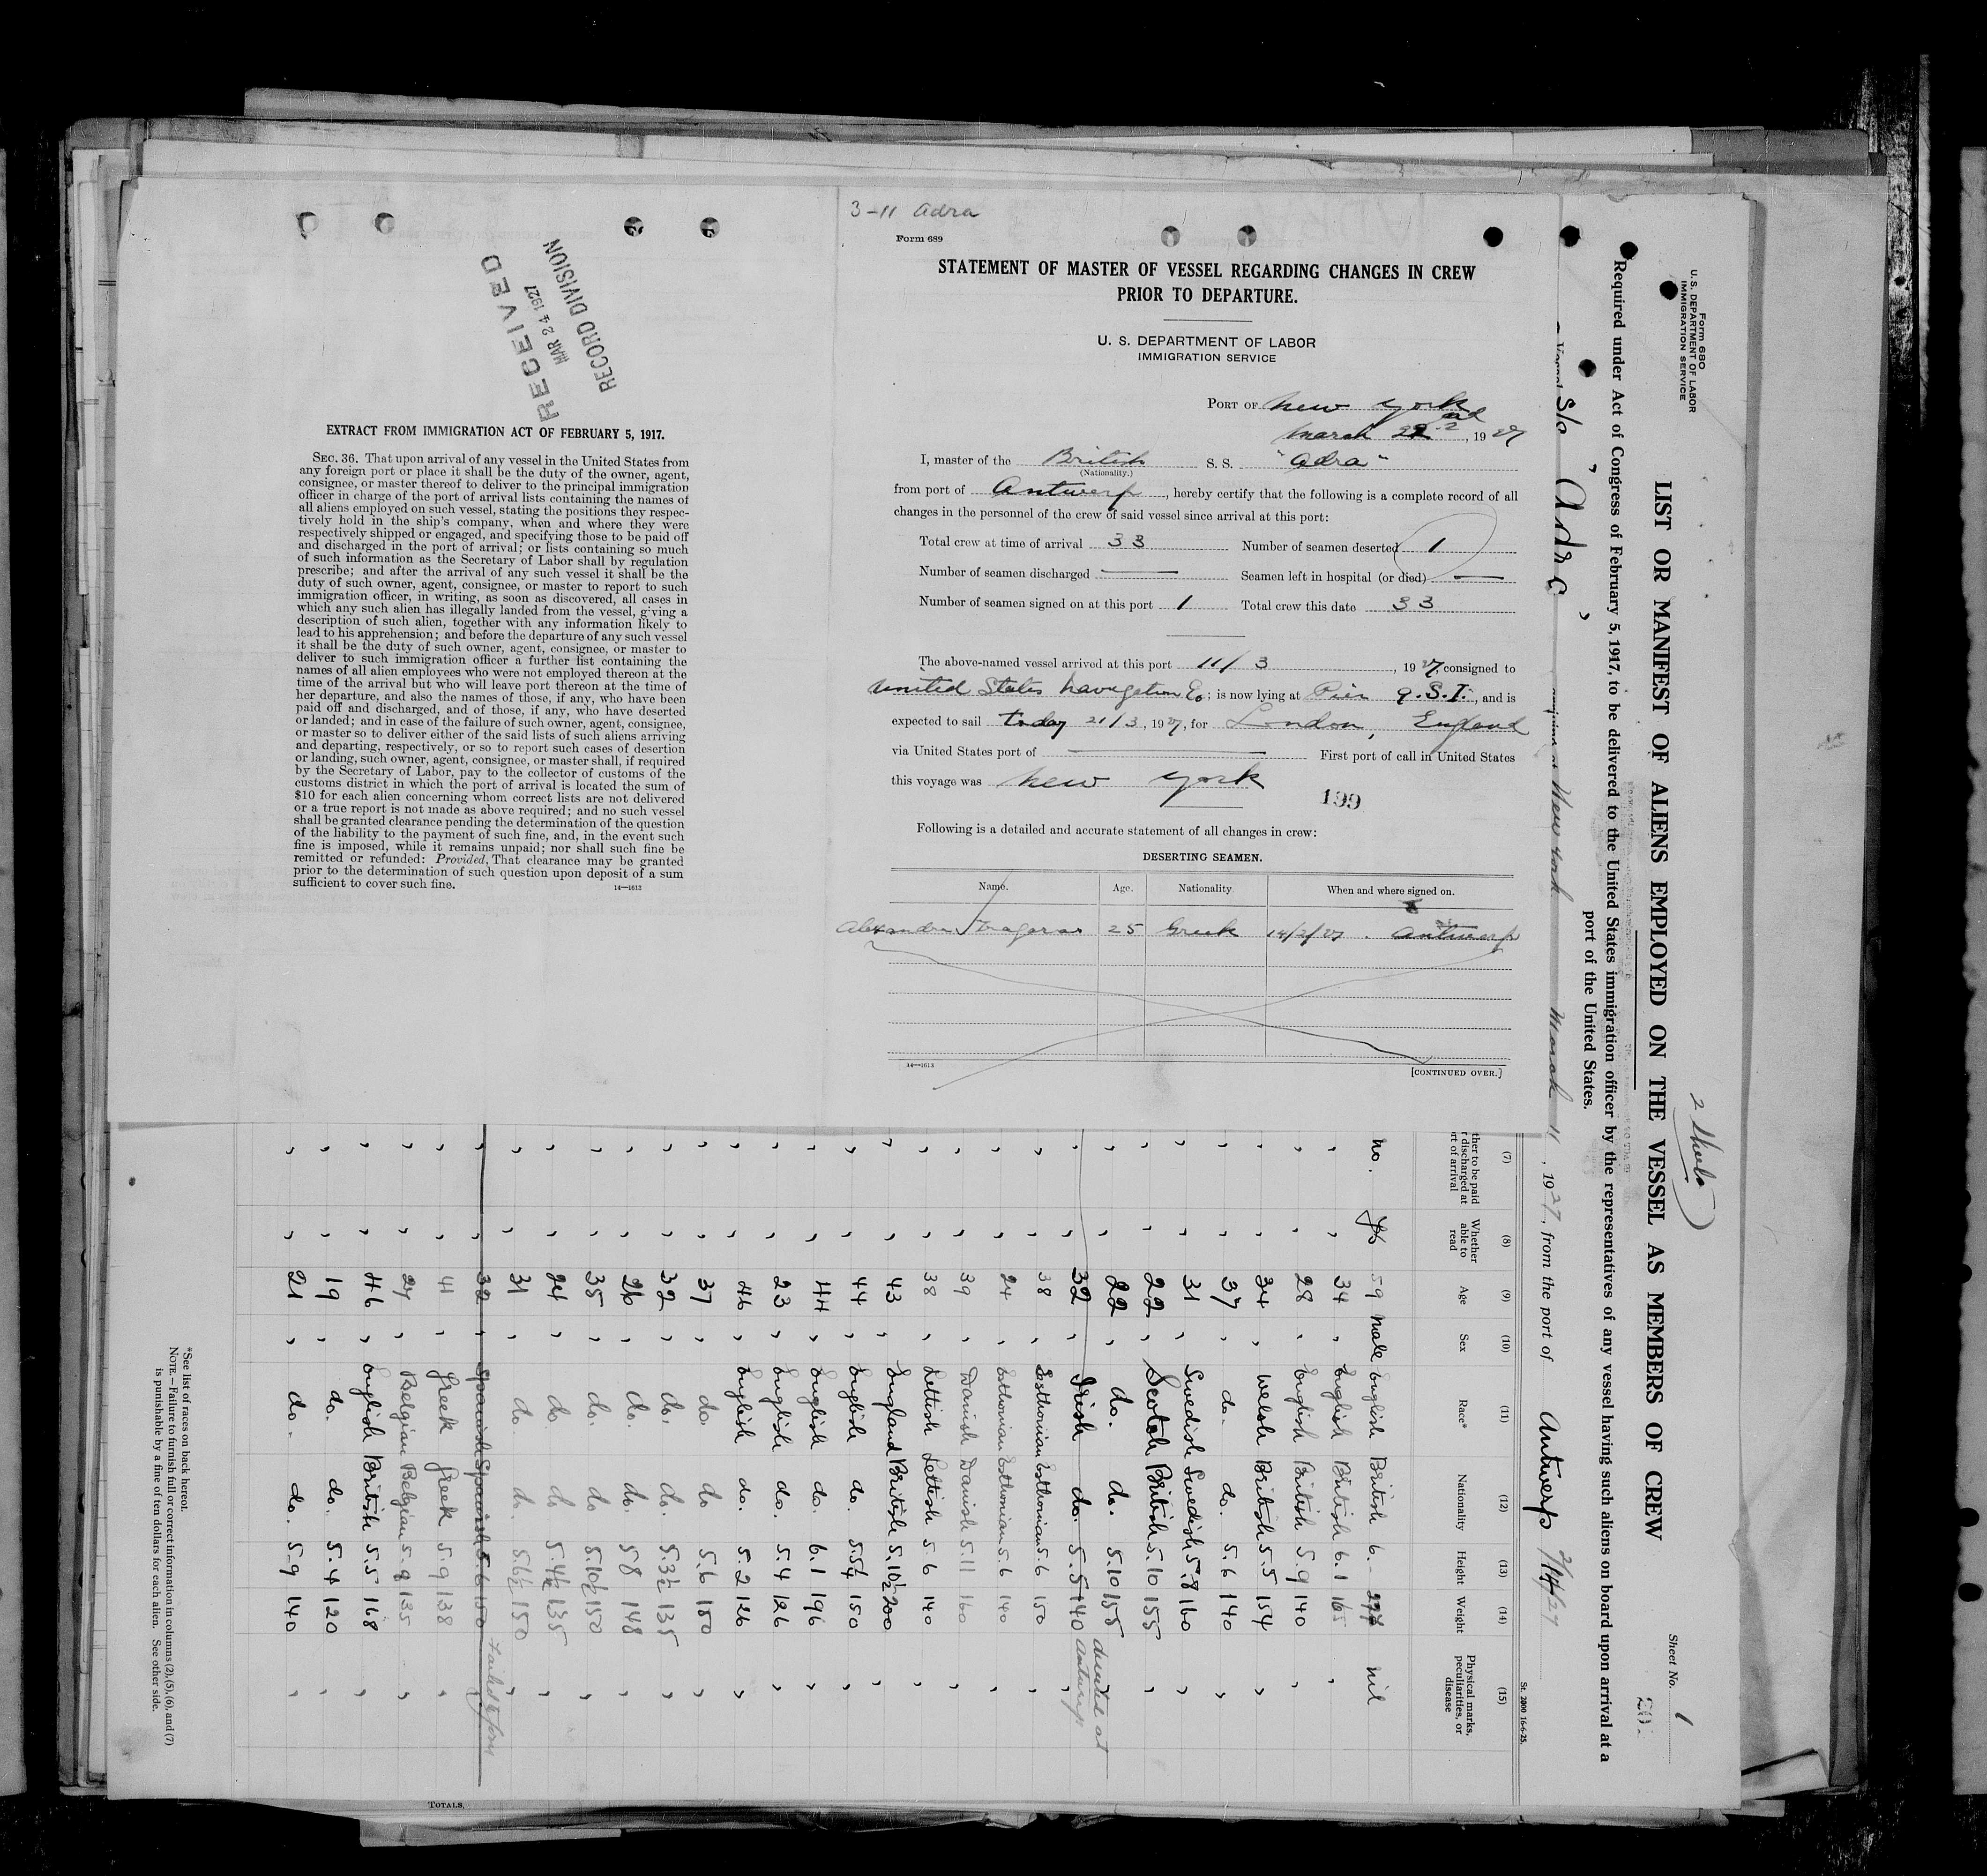 3-11 Adra
Form 689
STATEMENT OF MASTER OF VESSEL REGARDING CHANGES IN CREW
PRIOR TO DEPARTURE.
U. S. DEPARTMENT OF LABOR
IMMIGRATION SERVICE
PORT OF New York
March 22nd, 1927
I, master of the British S. S. "Adra"
(Nationality.)
from port of Antwerp, hereby certify that the following is a complete record of all
changes in the personnel of the crew of said vessel since arrival at this port:
Total crew at time of arrival 33 Number of seamen deserted 1
Number of seamen discharged — Seamen left in hospital (or died) —
Number of seamen signed on at this port 1 Total crew this date 33
The above-named vessel arrived at this port 11/3, 1927, consigned to
United States Navigation Co; is now lying at Pier 9. S.I., and is
expected to sail today 21/3, 1927, for London, England
via United States port of — First port of call in United States
this voyage was New York
199
Following is a detailed and accurate statement of all changes in crew:
DESERTING SEAMEN.
Name. Age. Nationality When and where signed on.
25 Greek 14/2/27. Antwerp
14—1613
[CONTINUED OVER.]
RECEIVED
MAR 24 1927
RECORD DIVISION
EXTRACT FROM IMMIGRATION ACT OF FEBRUARY 5, 1917.
SEC. 36. That upon arrival of any vessel in the United States from
any foreign port or place it shall be the duty of the owner, agent,
consignee, or master thereof to deliver to the principal immigration
officer in charge of the port of arrival lists containing the names of
all aliens employed on such vessel, stating the positions they respec-
tively hold in the ship's company, when and where they were
respectively shipped or engaged, and specifying those to be paid off
and discharged in the port of arrival; or lists containing so much
of such information as the Secretary of Labor shall by regulation
prescribe; and after the arrival of any such vessel it shall be the
duty of such owner, agent, consignee, or master to report to such
immigration officer, in writing, as soon as discovered, all cases in
which any such alien has illegally landed from the vessel, giving a
description of such alien, together with any information likely to
lead to his apprehension; and before the departure of any such vessel
it shall be the duty of such owner, agent, consignee, or master to
deliver to such immigration officer a further list containing the
names of all alien employees who were not employed thereon at the
time of the arrival but who will leave port thereon at the time of
her departure, and also the names of those, if any, who have been
paid off and discharged, and of those, if any, who have deserted
or landed; and in case of the failure of such owner, agent, consignee,
or master so to deliver either of the said lists of such aliens arriving
and departing, respectively, or so to report such cases of desertion
or landing, such owner, agent, consignee, or master shall, if required
by the Secretary of Labor, pay to the collector of customs of the
customs district in which the port of arrival is located the sum of
$10 for each alien concerning whom correct lists are not delivered
or a true report is not made as above required; and no such vessel
shall be granted clearance pending the determination of the question
of the liability to the payment of such fine, and, in the event such
fine is imposed, while it remains unpaid; nor shall such fine be
remitted or refunded: Provided, That clearance may be granted
prior to the determination of such question upon deposit of a sum
sufficient to cover such fine.
14—1613
Form 680
U. S. DEPARTMENT OF LABOR
IMMIGRATION SERVICE
2 Sheets
Sheet No. 1
LIST OR MANIFEST OF ALIENS EMPLOYED ON THE VESSEL AS MEMBERS OF CREW
Required under Act of Congress of February 5, 1917, to be delivered to the United States immigration officer by the representatives of any vessel having such aliens on board upon arrival at a
port of the United States.
Vessel S/S "Adra" arriving at New York March 11, 1927, from the port of Antwerp
St. 2000 16-6-25.
(7) (8) (9) (10) (11) (12) (13) (14) (15)
ther to be paid
r discharged at
rt of arrival
Whether
able to
read
Age
Sex
Race*
Nationality
Height
Weight
Physical marks,
peculiarities, or
disease
no. 59 male English British 6. nil
" " 34 " English British 6.1 165 "
" " 28 " English British 5.9 140 "
" " 34 " Welsh British 5.5 154 "
" " 37 " do. do. 5.6 140 "
" " 31 " Swedish Swedish 5.8 160 "
" " 22 " Scotch British 5.10 155 "
" " 22 " do. do. 5.10 155
" " 32 " Irish do. 5.5 140 " deserted at Antwerp
" " 38 " Esthonian Esthonian 5.6 150 "
" " 24 " Esthonian Esthonian 5.6 140 "
" " 39 " Danish Danish 5.11 160 "
" " 38 " Lettish Lettish 5.6 140 "
" " 43 " England British 5.10½ 200 "
" " 44 " English do. 5.5½ 150 "
" " 44 " English do. 6.1 196 "
" " 23 " English do. 5.4 126 "
" " 46 " English do. 5.2 126 "
" " 37 do. do 5.6 150 "
" " 32 " do. do. 5.3½ 135 "
" " 26 " do. do. 5.8 148 "
" " 35 " do. do 5.10½ 150 "
" " 24 " do. do 5.4½ 135 "
" " 31 " do. do. 5.6½ 150 "
" " 32 " Spanish Spanish 5.6 150 " Failed to join
41 " Greek Greek 5.9 138 "
" " 27 " Belgian Belgian 5.9 135 "
" " 46 " English British 5.5 168 "
" " 19 " do. do. 5.4 120 "
" " 21 " do. do. 5.9 140 "
*See list of races on back hereof.
NOTE.—Failure to furnish full or correct information in columns (2), (5), (6), and (7)
is punishable by a fine of ten dollars for each alien. See other side.
TOTALS,